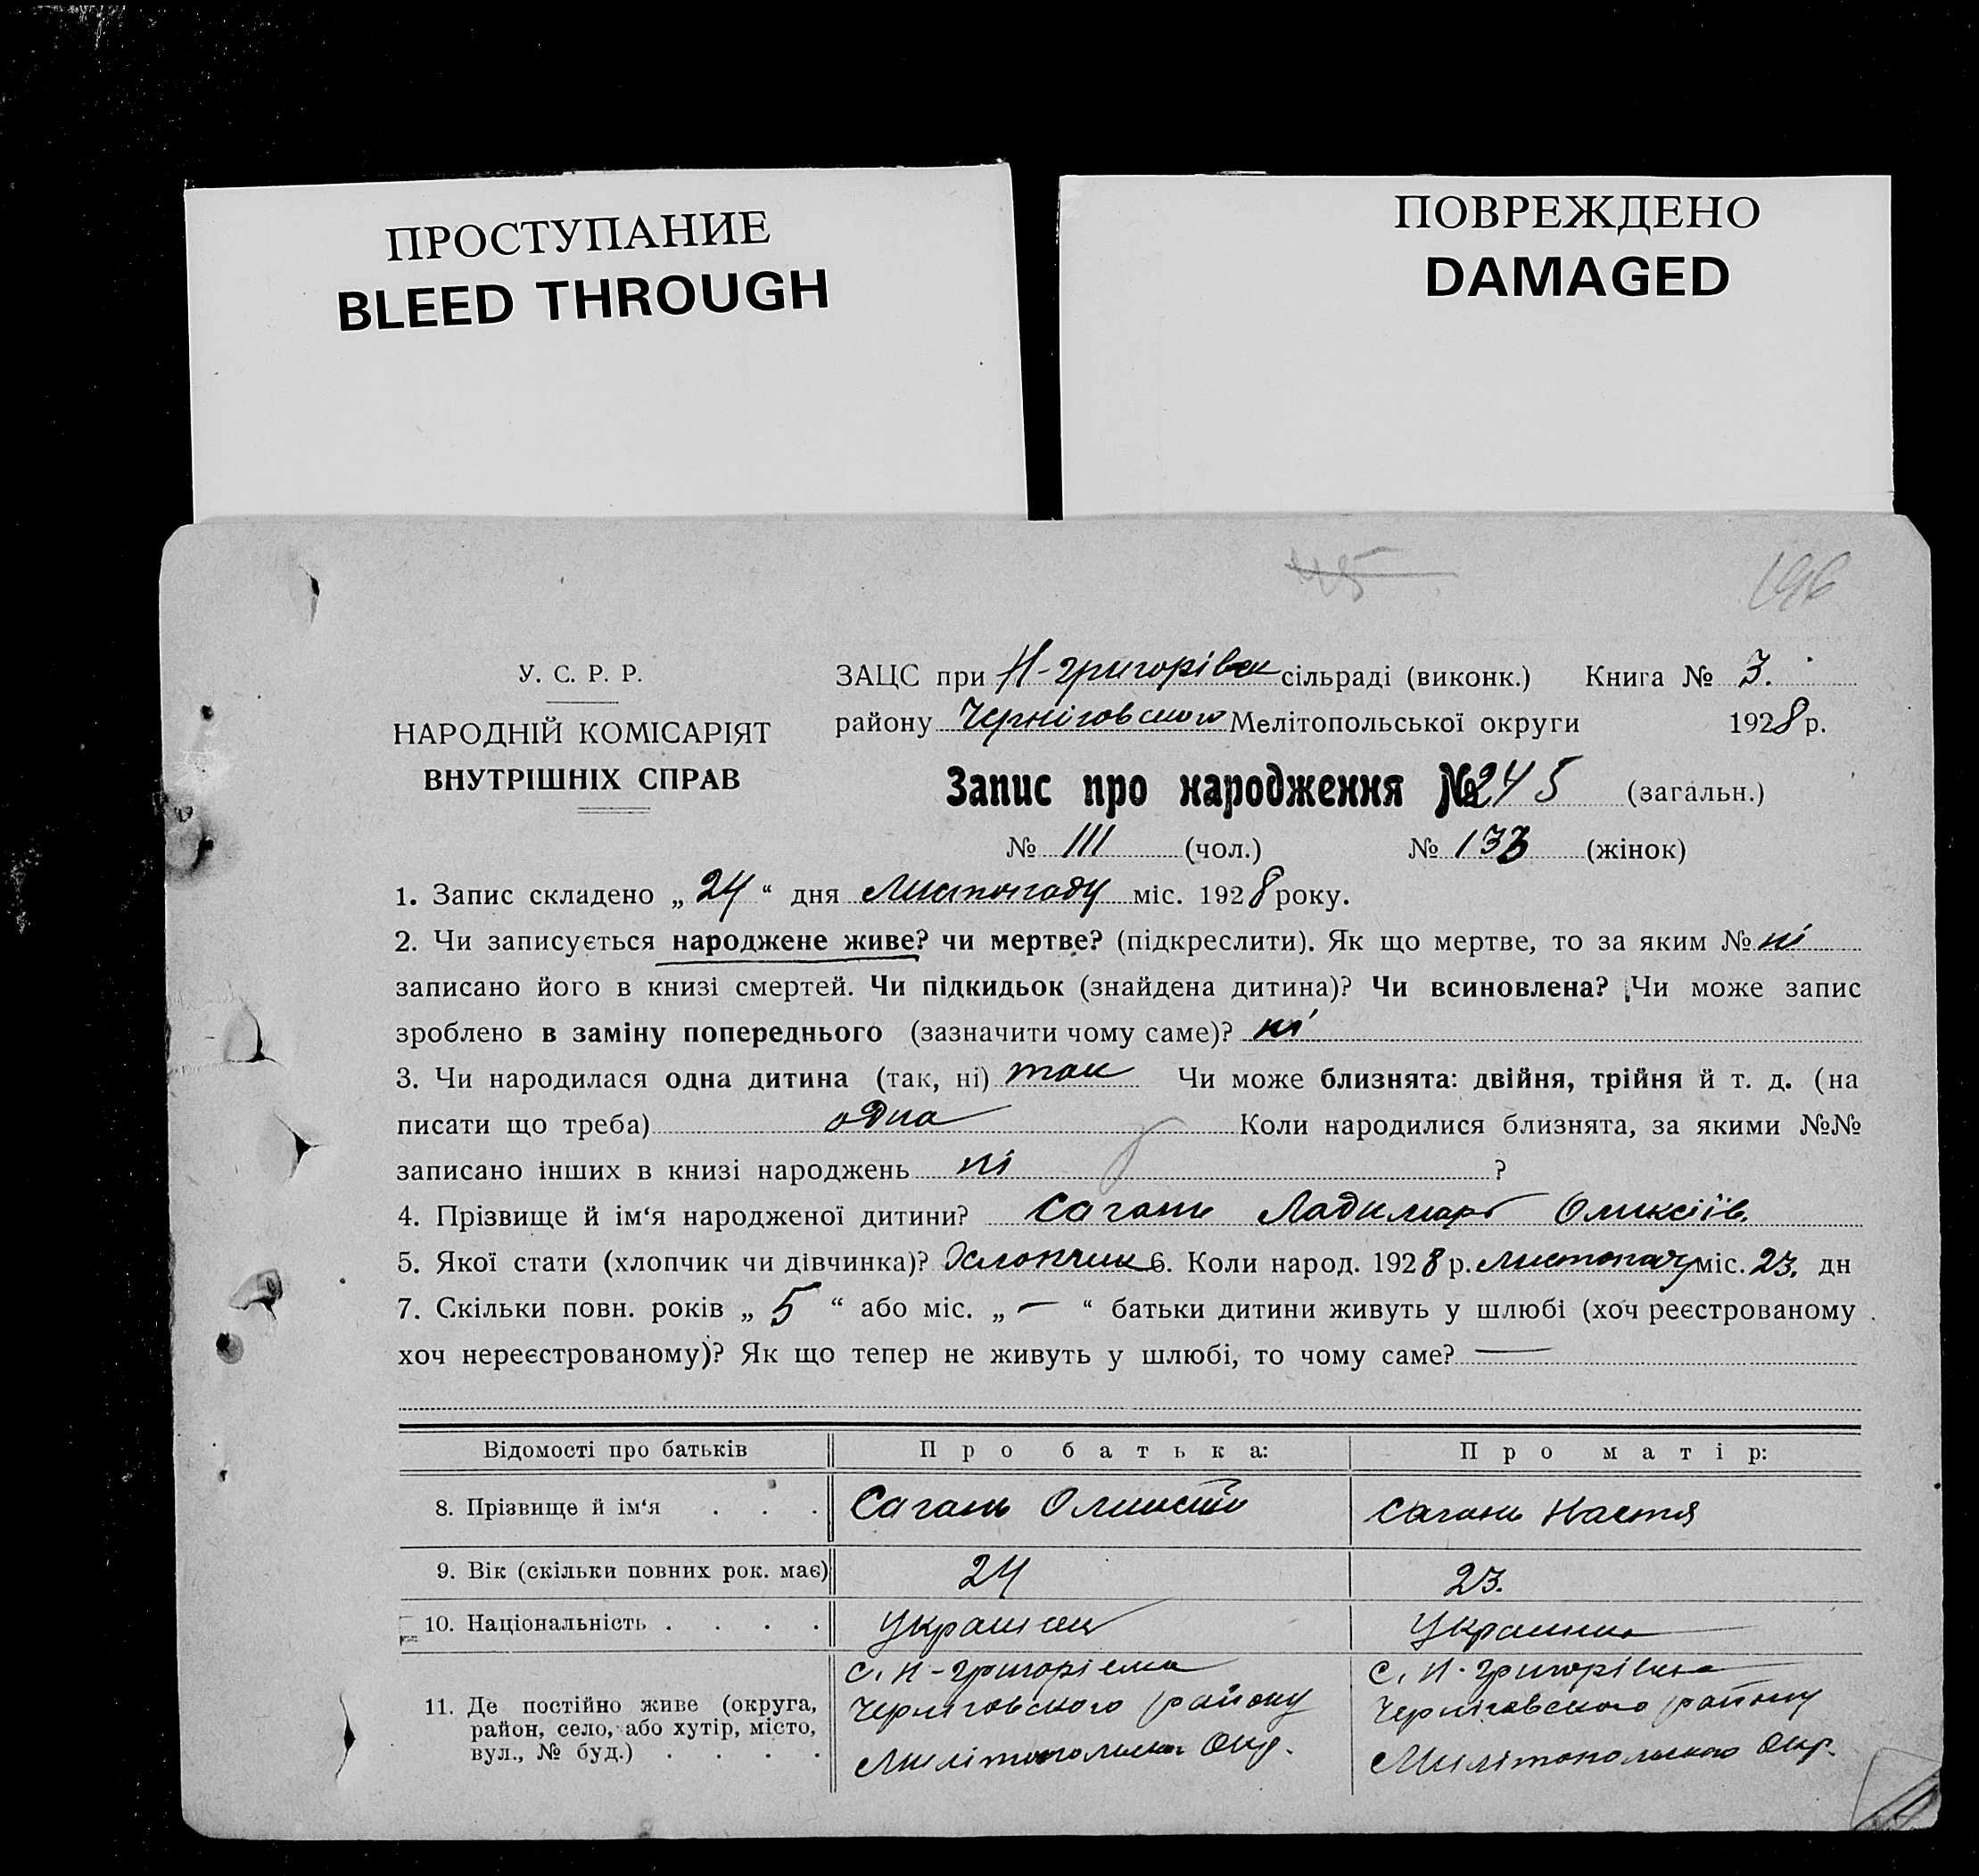 ПРОСТУПАНИЕ
BLEED THROUGH
ПОВРЕЖДЕНО
DAMAGED
45
196
У. С. Р. Р.
НАРОДНІЙ КОМІСАРІЯТ
ВНУТРІШНІХ СПРАВ
ЗАЦС при Н-григорівск сільраді (виконк.) Книга № 3.
району Черніговського Мелітопольської округи 1928 р.
Запис про народження № 245 (загальн.)
№ 111 (чол.) № 133 (жінок)
1. Запис складено „ 24 “ дня Листопаду міс. 1928 року.
2. Чи записується народжене живе? чи мертве? (підкреслити). Як що мертве, то за яким № ні
записано його в книзі смертей. Чи підкидьок (знайдена дитина)? Чи всиновлена? Чи може запис
зроблено в заміну попереднього (зазначити чому саме)? ні
3. Чи народилася одна дитина (так, ні) так Чи може близнята: двійня, трійня й т. д. (на
писати що треба) одна Коли народилися близнята, за якими №№
записано інших в книзі народжень ні ?
4. Прізвище й ім‘я народженої дитини? Сагань Ладимарь Оликсіїв.
5. Якої стати (хлопчик чи дівчинка)? Хлопчик 6. Коли народ. 1928 р. листопаду міс. 23. дн
7. Скільки повн. років „ 5 “ або міс. „ — “ батьки дитини живуть у шлюбі (хоч реєстрованому
хоч нереєстрованому)? Як що тепер не живуть у шлюбі, то чому саме? —
Відомості про батьків Про батька: Про матір:
8. Прізвище й ім‘я . . . Сагань Сагань Настя
9. Вік (скільки повних рок. має) 24 23.
10. Національність . . . . Украінец Украинка
11. Де постійно живе (округа,
район, село, або хутір, місто,
вул., № буд.) . . . .
с. Н-Григорівка
Черніговського району
Милітопольська Окр.
с. Н-Григорівка
Чернігавського району
Милітопольсько Окр.